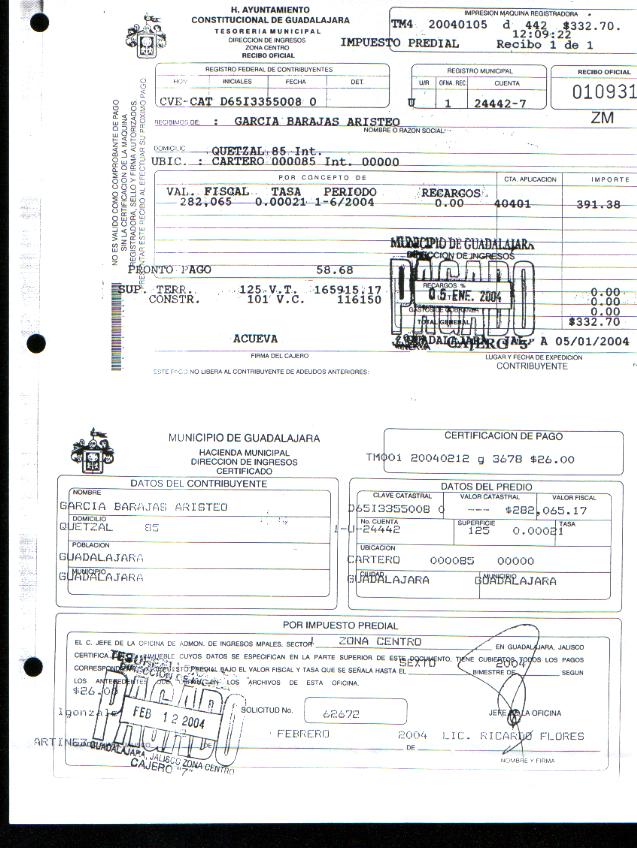 H. AYUNTAMIENTO
CONSTITUCIONAL DE GUADALAJARA
TESORERIA MUNICIPAL
DIRECCION DE INGRESOS
ZONA CENTRO
RECIBO OFICIAL
IMPRESION MAQUINA REGISTRADORA
TM4 20040105 d 442 $332.70
12:09:22
IMPUESTO PREDIAL Recibo 1 de 1
REGISTRO FEDERAL DE CONTRIBUYENTES
INICIALES FECHA DET.
CVE-CAT D65I3355008 0
REGISTRO MUNICIPAL
U/R OFNA. REC. CUENTA
U 1 24442-7
RECIBO OFICIAL
010931
ZM
RECIBIMOS DE: : GARCIA BARAJAS ARISTEO
NOMBRE O RAZON SOCIAL
DOMICILIO QUETZAL 85 Int.
UBIC. : CARTERO 000085 Int. 00000
POR CONCEPTO DE CTA. APLICACION IMPORTE
VAL. FISCAL TASA PERIODO RECARGOS
282,065 0.00021 1-6/2004 0.00 40401 391.38
NO ES VALIDO COMO COMPROBANTE DE PAGO
SIN LA CERTIFICACION DE LA MAQUINA
REGISTRADORA, SELLO Y FIRMA AUTORIZADOS.
PRESENTAR ESTE RECIBO AL EFECTUAR SU PROXIMO PAGO
MUNICIPIO DE GUADALAJARA
DIRECCION DE INGRESOS
PAGADO
RECARGOS %
05 ENE. 2004
PRONTO PAGO 58.68
SUP. TERR. 125 V.T. 165915.17
CONSTR. 101 V.C. 116150
0.00
0.00
0.00
TOTAL GENERAL $332.70
ACUEVA
CAJERO 5
GUADALAJARA JAL. A 05/01/2004
FIRMA DEL CAJERO
LUGAR Y FECHA DE EXPEDICION
CONTRIBUYENTE
ESTE PAGO NO LIBERA AL CONTRIBUYENTE DE ADEUDOS ANTERIORES:
MUNICIPIO DE GUADALAJARA
HACIENDA MUNICIPAL
DIRECCION DE INGRESOS
CERTIFICADO
CERTIFICACION DE PAGO
TM001 20040212 g 3678 $26.00
DATOS DEL CONTRIBUYENTE
NOMBRE
GARCIA BARAJAS ARISTEO
DOMICILIO
QUETZAL 85
POBLACION
GUADALAJARA
MUNICIPIO
GUADALAJARA
DATOS DEL PREDIO
CLAVE CATASTRAL VALOR CATASTRAL VALOR FISCAL
D65I3355008 0 --- $282,065.17
No. CUENTA SUPERFICIE TASA
1-U-24442 125 0.00021
UBICACION
CARTERO 000085 00000
CIUDAD MUNICIPIO
GUADALAJARA GUADALAJARA
POR IMPUESTO PREDIAL
EL C. JEFE DE LA OFICINA DE ADMON. DE INGRESOS MPALES. SECTOR ZONA CENTRO EN GUADALAJARA, JALISCO
CERTIFICA INMUEBLE CUYOS DATOS SE ESPECIFICAN EN LA PARTE SUPERIOR DE ESTE DOCUMENTO, TIENE CUBIERTOS TODOS LOS PAGOS
CORRESPONDIENTES PREDIAL BAJO EL VALOR FISCAL Y TASA QUE SE SEÑALA HASTA EL SEXTO BIMESTRE DE 2004 SEGUN
LOS ANTECEDENTES LOS ARCHIVOS DE ESTA OFICINA.
$26.00
PAGADO
FEB 12 2004
SOLICITUD No. 62672
JEFE DE LA OFICINA
FEBRERO 2004 LIC. RICARDO FLORES
DE
NOMBRE Y FIRMA
GUADALAJARA, JALISCO ZONA CENTRO
CAJERO "7"